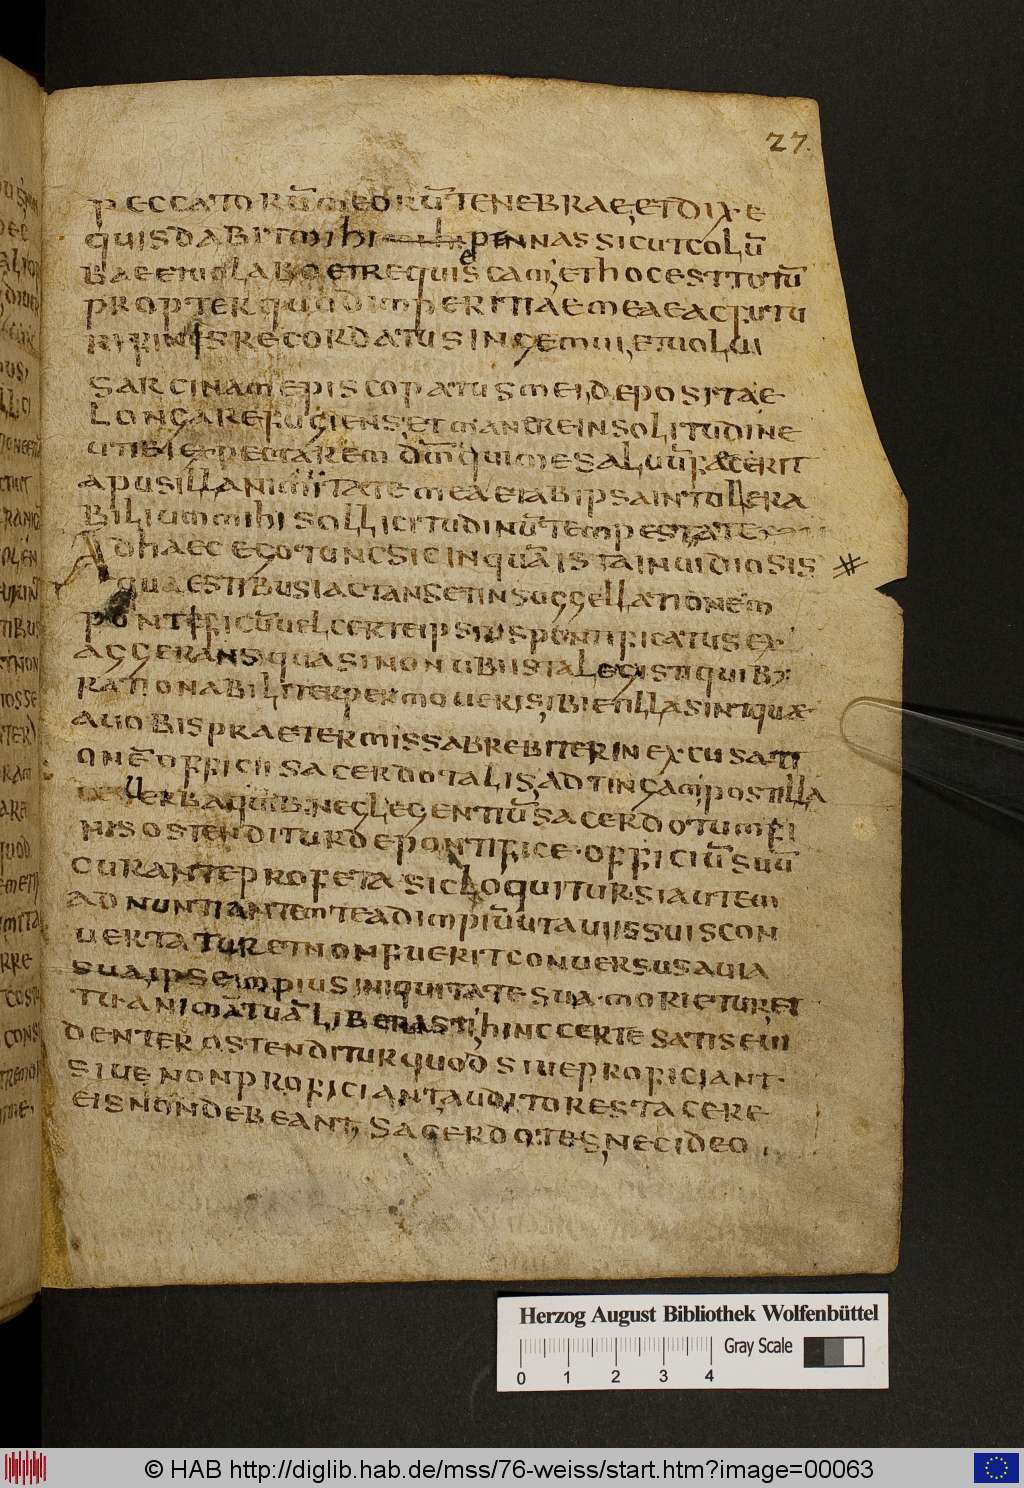 27.
PECCATORŪ MEORŪ TENEBRAE, ET DIXE
QUIS DABIT MIHI PENNAS SICUT COLŪ
BAE ET UOLABO ET REQUIESCAM, ET HOC EST TOTŪ
PROPTER QUOD IMPERITIAE MEAE AC FUTU
RI FINIS RECORDATUS INGEMUI, ET UOLUI
SARCINAM EPISCOPATUS MEI, DEPOSITA E
LONGARE FUGIENS, ET MANERE IN SOLITUDINE
UT IBI EXPECTAREM DM̄ QUI ME SALUŪ FACERIT
A PUSILLANIMITATE MEA ET AB IPSA INTOLLERA
BILIUM MIHI SOLLICITUDINŪ TEMPESTATE
AD HAEC EGO TUNC SIC INQUĀ ISTA INUIDIOSIS
QUAESTIBUS IACTANS ET IN SUGGELLATIONEM
PONTIFICŪ UEL CERTE IPSIUS PONTIFICATUS EX
AGGERANS QUASI NON UBI ISTA LEGISTI QUIB;
RATIONABILITER PERMOUERIS, IBI ET ILLA SINT QUAE
A UOBIS PRAETERMISSA BREBITER IN EXCUSATI
ONĒ OFFICII SACERDOTALIS, ADTINGAM, POST ILLA
UERBA QUIB; NEGLEGENTIŪ SACERDOTUM FI
NIS OSTENDITUR DE PONTIFICE OFFICIŪ SUŪ
CURANTE PROFETA SIC LOQUITUR SI AUTEM
ADNUNTIANTEM TE AD IMPIŪ UT A UIIS SUIS CON
UERTATUR ET NON FUERIT CONUERSUS A UIA
SUA IPSE IMPIUS INIQUITATE SUA MORIETUR, ET
TU ANIMĀ TUĀ LIBERASTI, HINC CERTE SATIS EUI
DENTER OSTENDITUR QUOD SIUE PROFICIANT
SIUE NON PROFICIANT AUDITORES TACERE
EIS NON DEBEANT, SACERDOTES, NEC IDEO
Herzog August Bibliothek Wolfenbüttel
Gray Scale
0 1 2 3 4
© HAB http://diglib.hab.de/mss/76-weiss/start.htm?image=00063